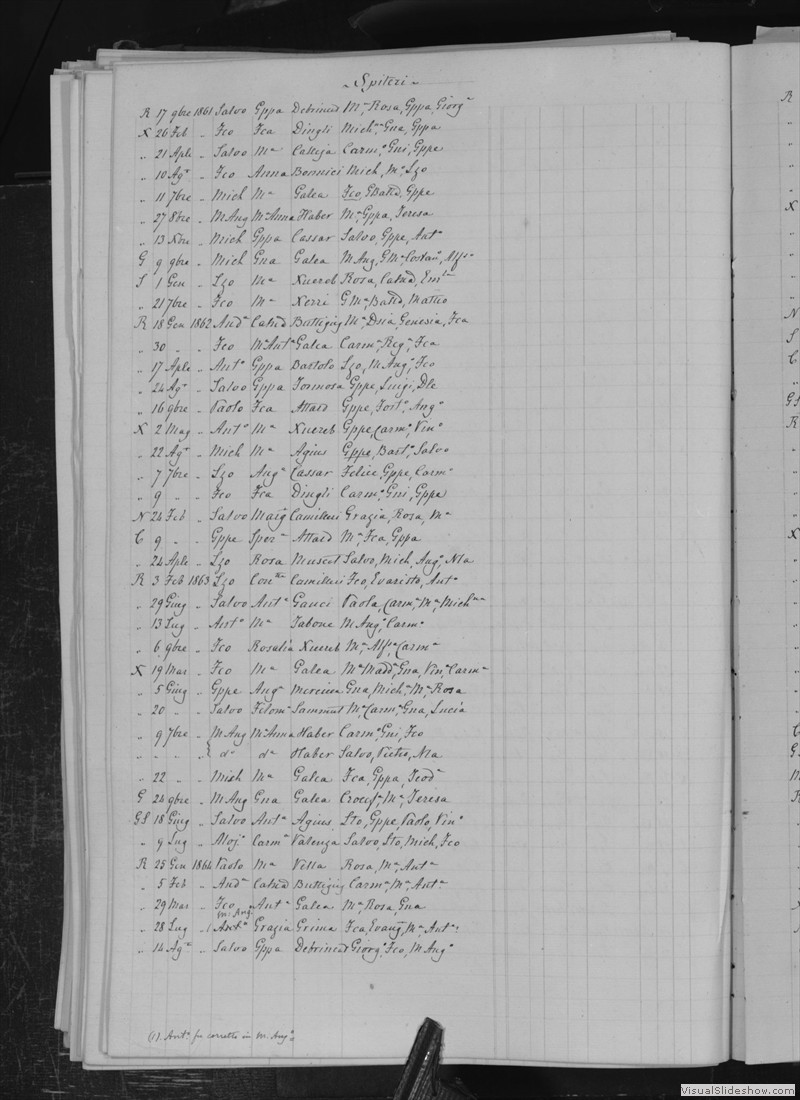 Spiteri
R 17 9bre 1861 Salvo Gppa Debrincat Mª Rosa, Gppa, Giorgª
X 26 Feb „ Fco Fca Dingli Michⁿᵃ Gna, Gppa
„ 21 Aple „ Salvo Mª Calleja Carmº Gni, Gppe
„ 10 Agº „ Fco Anna Bonnici Mich, Mª Lzo
„ 11 7bre „ Mich Mª Galea Fco, GBatta, Gppe
„ 27 8bre „ M Ang Mª Anna Haber Mª Gppa, Teresa
„ 13 Xbre „ Mich Gppa Cassar Salvo, Gppe, Antº
G 9 9bre „ Mich Gna Galea M Ang, GMª Alfº
S 1 Gen „ Lzo Mª Xuereb Rosa, Catad, Emª
„ 21 7bre „ Fco Mª Xerri G Mª Batta, Matteo
R 18 Gen 1862 Andª Catad Buttigieg Mª Dnia, Genesia, Fca
„ 30 „ „ Fco Mª Antª Galea Carmª Regª Fca
„ 17 Aple „ Antº Gppa Bartolo Lzo, M Angº Fco
„ 24 Agº „ Salvo Gppa Formosa Gppe, Luigi, Dle
„ 16 9bre „ Paolo Fca Attard Gppe, Fortº Angº
X 2 Mag „ Antº Mª Xuereb Gppe, Carmº Vinº
„ 22 Agº „ Mich Mª Agius Gppe, Bartº Salvo
„ 7 7bre „ Lzo Angª Cassar Felice, Gppe, Carmº
„ 9 „ „ Fco Fca Dingli Carmº Gni, Gppe
N 24 Feb „ Salvo Marg Camilleri Grazia, Rosa, Mª
C 9 „ „ Gppe Sperª Attard Mª Fca, Gppa
„ 24 Aple „ Lzo Rosa Muscat Salvo, Mich, Angº Nla
R 3 Feb 1863 Lzo Conᵗᵃ Camilleri Fco, Evaristo, Antº
„ 29 Giug „ Salvo Antª Gauci Paola, Carmª Mª Michⁿᵃ
„ 13 Lug „ Antº Mª Tabone M Angº Carmº
„ 6 9bre „ Fco Rosalia Xuereb Mª Alfª Carmª
X 19 Mar „ Fco Mª Galea Mª Madd, Gna, Vinª Carmª
„ 5 Giug „ Gppe Angª Mercieca Gna, Michª Mª Rosa
„ 20 „ „ Salvo Filomª Sammut Mª Carmª Gna, Lucia
„ 9 7bre „ M Ang Mª Anna Haber Carmº Gni, Fco
„ „ „ „ dº dª Haber Salvo, Pietro, Nla
„ 22 „ „ Mich Mª Galea Fca, Gppa, Teodª
G 24 9bre „ M Ang Gna Galea Crocifª Mª Teresa
GS 18 Giug „ Salvo Antª Agius Sto, Gppe, Paolo, Vinº
„ 9 Lug „ Alojº Carmª Valenza Salvo, Sto, Mich, Fco
R 25 Gen 1864 Paolo Mª Vella Rosa, Mª Antª
„ 5 Feb „ Andª Catad Buttigieg Carmª Mª Antª
„ 29 Mar „ Fco Antª Galea Mª Rosa, Gna
M. Ang.
„ 28 Lug „ (1 Antº Grazia Grima Fca, Evang, Mª Antª
„ 14 Agº „ Salvo Gppa Debrincat Giorgº Fco, M Angº
(1). Antº fu corretto in M. Angº
R
X
N
S
C
GS
R
X
C
G
R
X
VisualSlideshow.com